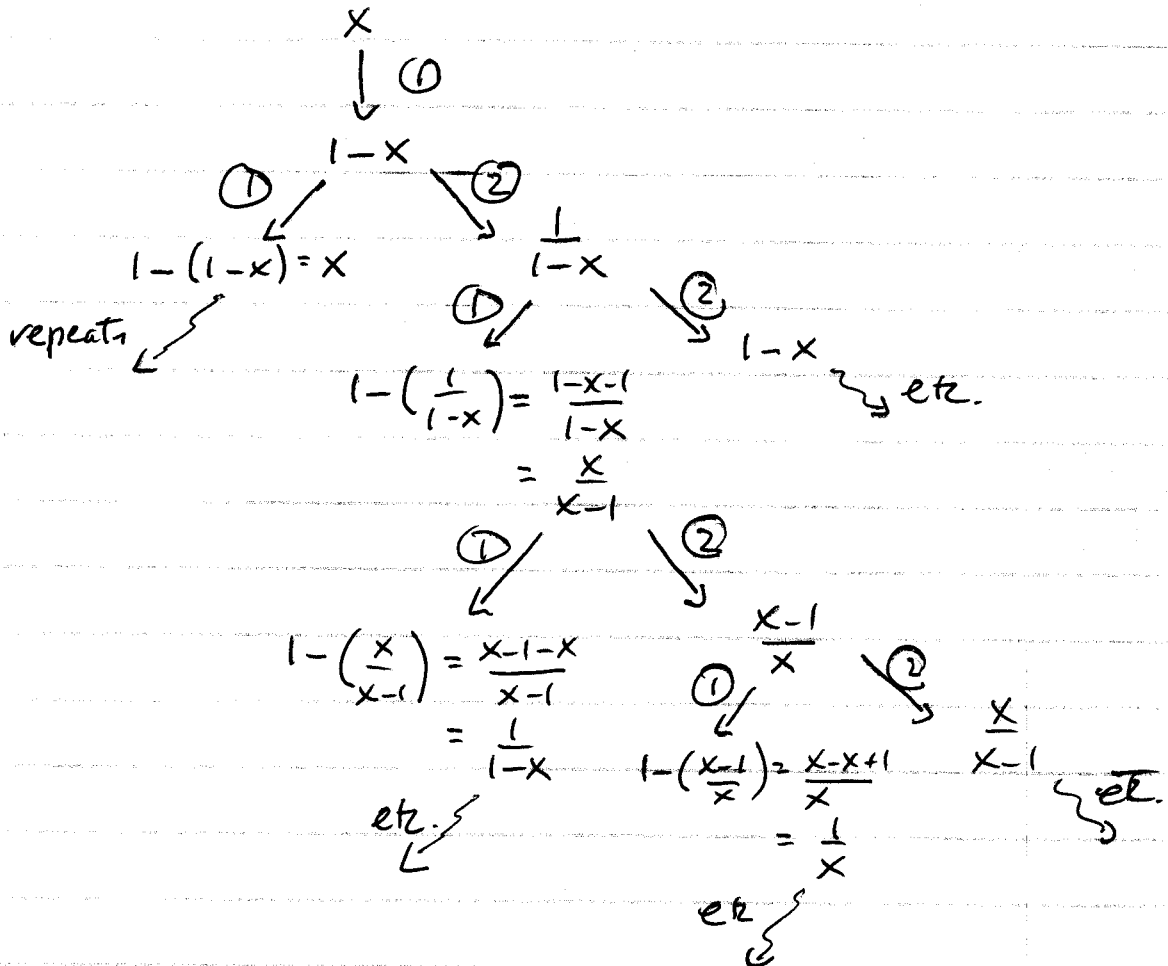 x
①
1 - x
① ②
1 - (1 - x) = x
1/(1 - x)
repeats
① ②
1 - x
etc.
1 - (1/(1-x)) = (1-x-1)/(1-x)
= x/(x-1)
① ②
1 - (x/(x-1)) = (x-1-x)/(x-1)
= 1/(1-x)
etc.
(x-1)/x
① ②
1 - ((x-1)/x) = (x-x+1)/x
= 1/x
etc
x/(x-1)
etc.